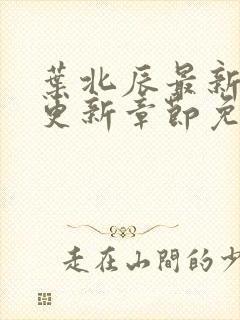 葉北辰最新
更新章節免
走在山間的少